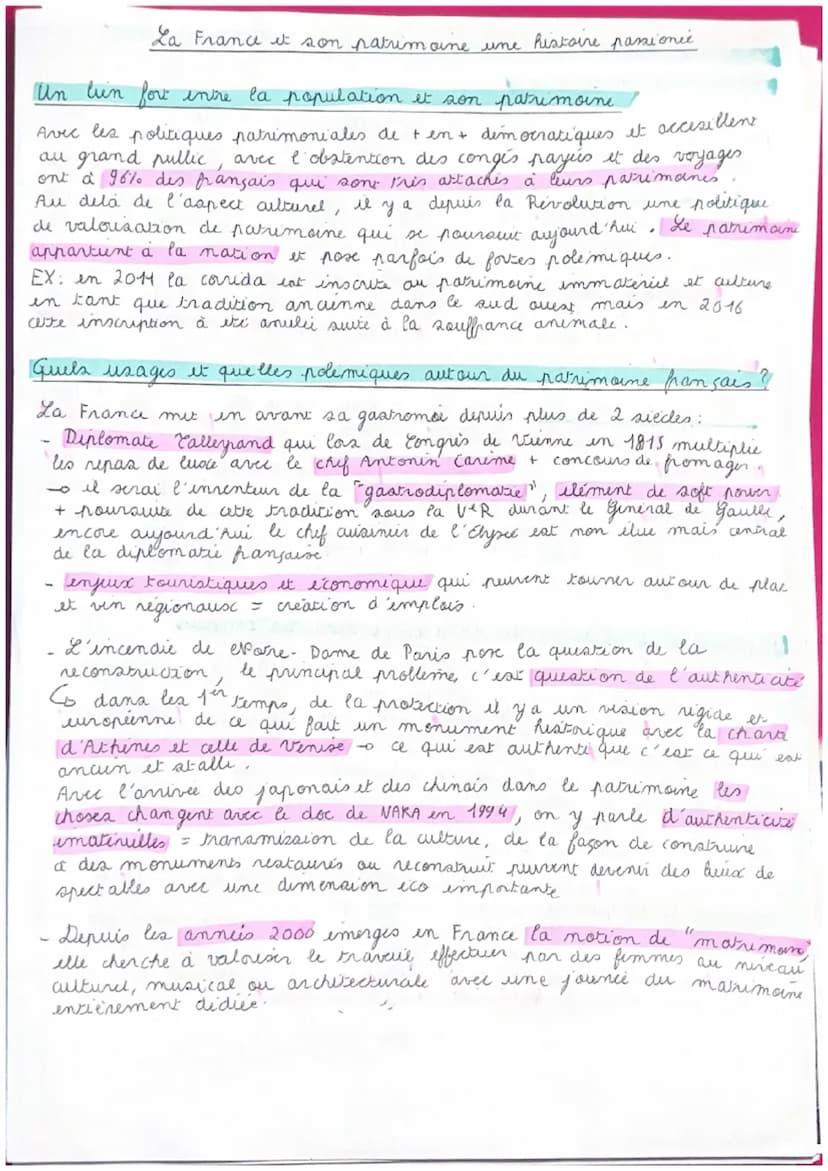 La France et son patrimoine une histoire passionée
Un lien fort entre la population et son patrimoine
Avec les politiques patrimoniales de + en + démocratiques et accesillent
au grand pullic, avec l'obstention des congés payées et des voyages
ont à 96% des français qui sont très attachés à leurs patrimoines.
Au delà de l'aspect culturel, il y a depuis la Révolution une politique
de valorisation de patrimoine qui se poursuit aujourd'hui. Le patrimoine
appartient à la nation et pose parfois de fortes polémiques.
EX: en 2011 la corrida est inscrite au patrimoine immatériel et culture
en tant que tradition ancienne dans le sud ouest mais en 2016
cette inscription à été anulée suite à la souffrance animale.
Quels usages et quelles polémiques autour du patrimoine français?
La France met en avant sa gastromoé depuis plus de 2 siècles:
- Diplomate Talleyrand qui lors de Congrès de Vienne en 1815 multiplie
les repas de luxe avec le chef Antonin Carême + concours de fromages.
→ il serai l'inventeur de la "gastrodiplomatie", élément de soft power
+ poursuite de cette tradition sous la VeR durant le Général de Gaulle,
encore aujourd'hui le chef cuisinier de l'Elysée est non élue mais central
de la diplomatie française
- enjeux touristiques et économique qui peuvent tourner autour de plat
et vin régionaux = création d'emplois.
- L'incendie de Notre-Dame de Paris pose la question de la
reconstruction, le principal problème, c'est question de l'authenticité
↳ dans les 1er temps, de la protection il y a un vision rigide et
européenne de ce qui fait un monument historique avec la charte
d'Athènes et celle de Venise → ce qui est authentique c'est ce qui est
ancien et statle.
Avec l'arrivée des japonais et des chinois dans le patrimoine les
choses changent avec le doc de NARA en 1994, on y parle d'authenticité
imatérielles = transmission de la culture, de la façon de construire
à des monuments restaurés ou reconstruit peuvent devenir des lieux de
spectalles avec une dimension éco importante
- Depuis les années 2000 émerges en France la notion de "matrimoine"
elle cherche à valoriser le travail effectuer par des femmes au niveau
culturel, musical ou architecturale avec une journée du matrimoine
entièrement dédiée.